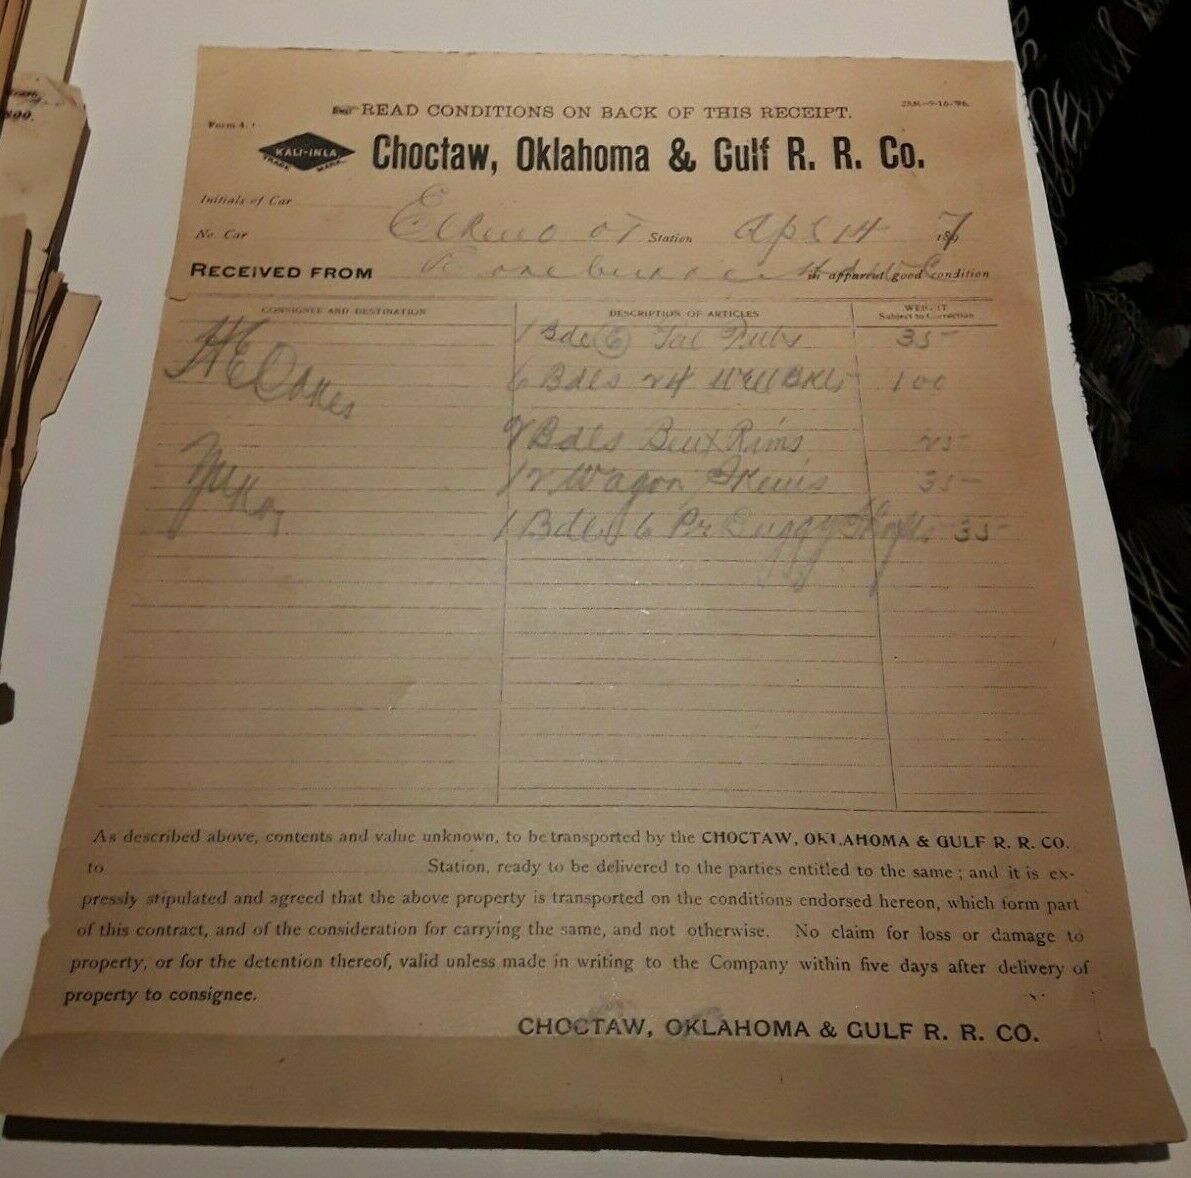 READ CONDITIONS ON BACK OF THIS RECEIPT.
Form 4.
KALI-INLA
TRADE MARK
Choctaw, Oklahoma & Gulf R. R. Co.
Initials of Car
No. Car
El Reno OT Station Apl 14 1897
RECEIVED FROM in apparent good condition
CONSIGNEE AND DESTINATION DESCRIPTION OF ARTICLES WEIGHT
Subject to Correction
H E Oakes
Yukon
1 Bdl 6 35
6 Bdls 24 Well Bkts 100
2 Bdls Bent Rims 25
12 Wagon Skeins 35
1 Bdl 6 Pr Buggy Shafts 35
As described above, contents and value unknown, to be transported by the CHOCTAW, OKLAHOMA & GULF R. R. CO.
to Station, ready to be delivered to the parties entitled to the same; and it is ex-
pressly stipulated and agreed that the above property is transported on the conditions endorsed hereon, which form part
of this contract, and of the consideration for carrying the same, and not otherwise. No claim for loss or damage to
property, or for the detention thereof, valid unless made in writing to the Company within five days after delivery of
property to consignee.
CHOCTAW, OKLAHOMA & GULF R. R. CO.